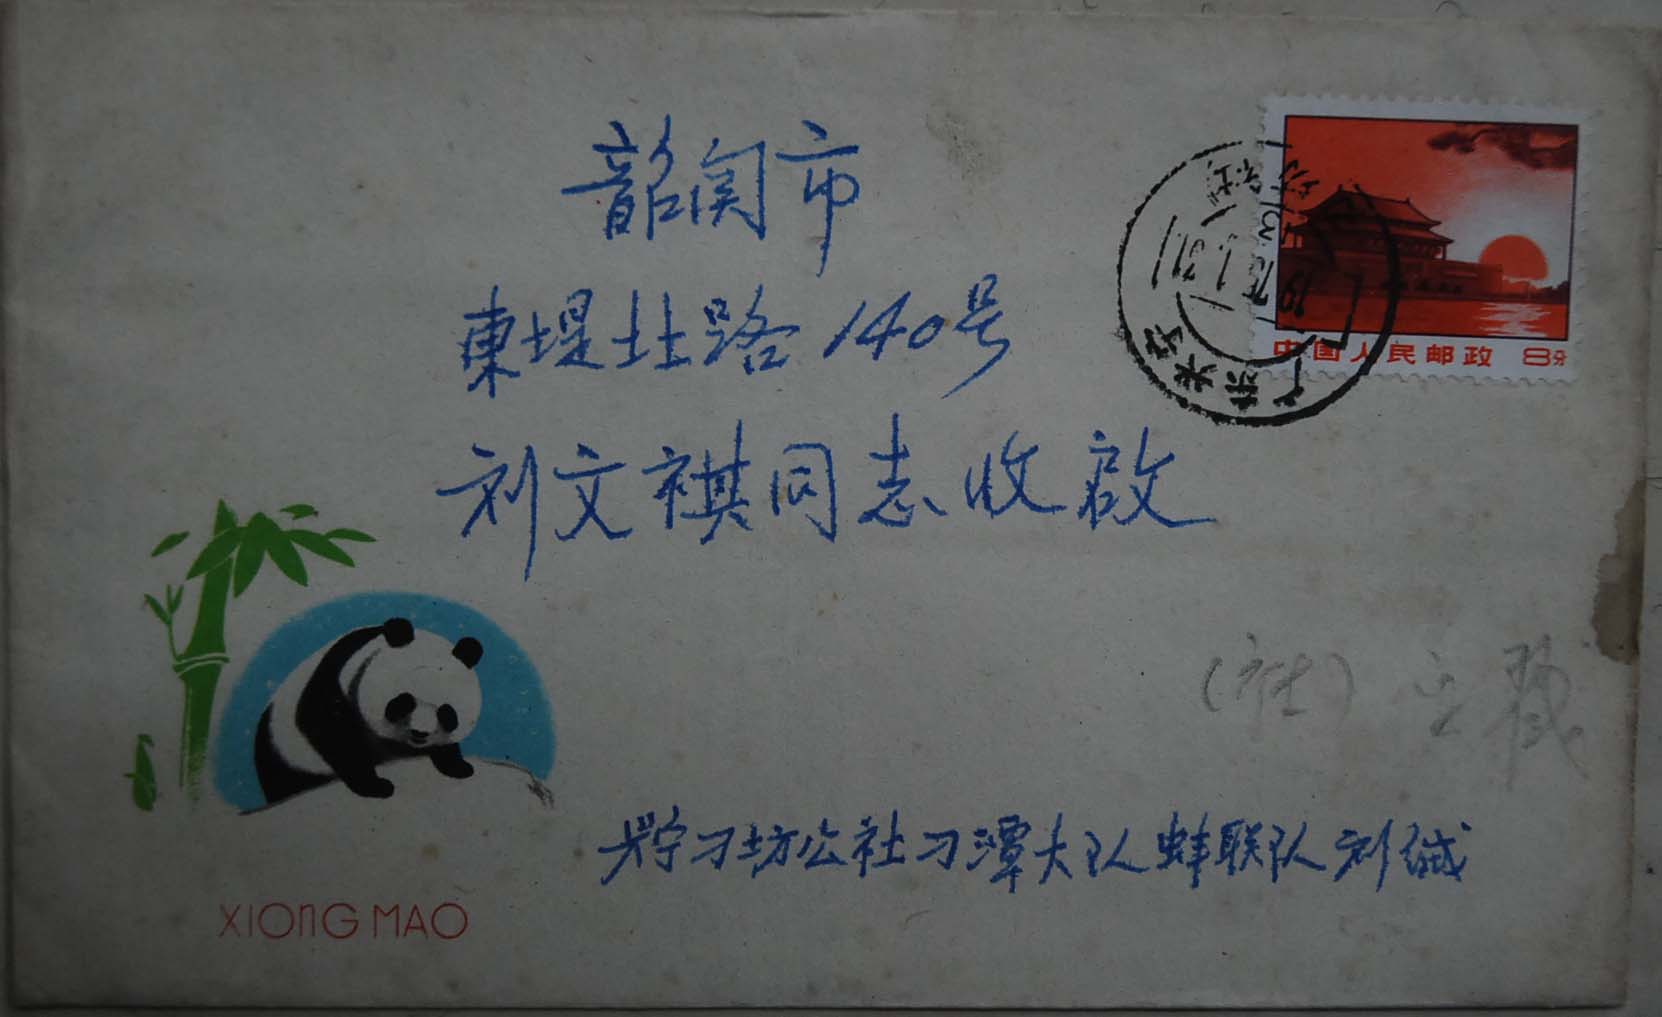 韶关市
東堤北路140号
刘文祺同志收啟
中国人民邮政 8分
广东兴宁
(社)
兴宁刁坊公社刁潭大队蚌联队刘缄
XIONG MAO